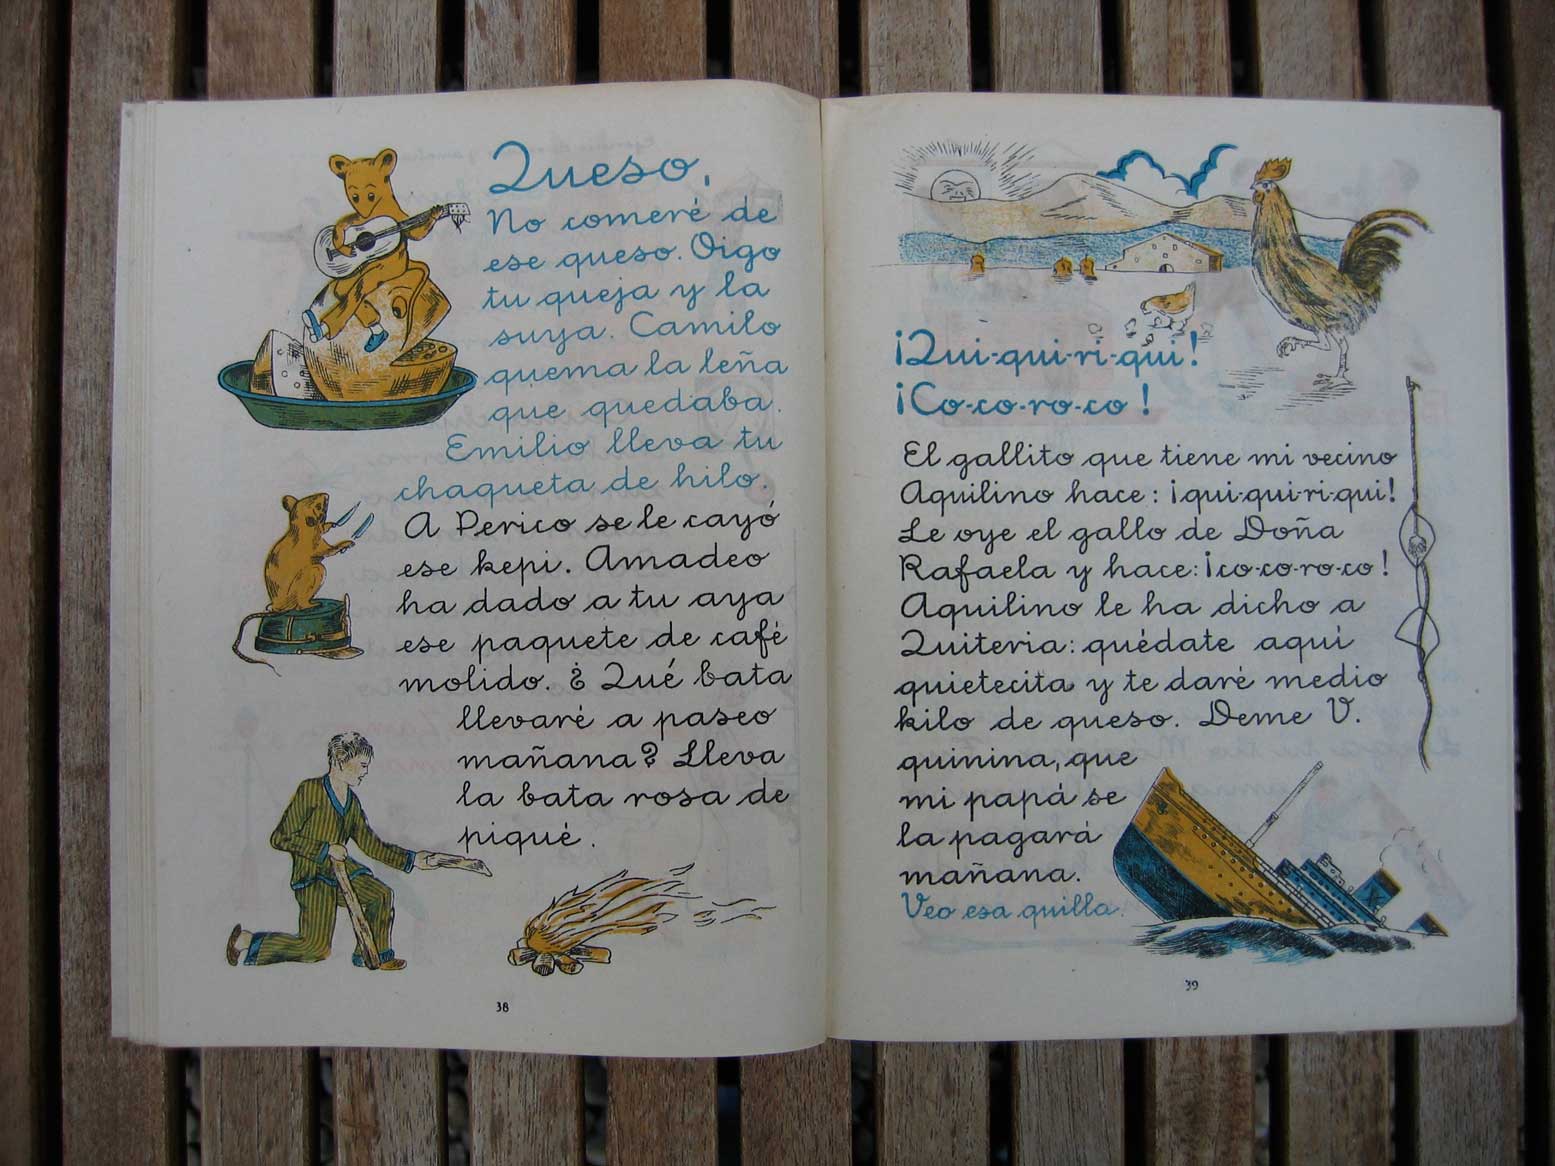 Queso,
No comeré de
ese queso. Oigo
tu queja y la
suya. Camilo
quema la leña
que quedaba.
Emilio lleva tu
chaqueta de hilo.
A Perico se le cayó
ese kepi. Amadeo
ha dado a tu aya
ese paquete de café
molido. ¿Qué bata
llevaré a paseo
mañana? Lleva
la bata rosa de
piqué.
38
¡Qui-qui-ri-qui!
¡Co-co-ro-co!
El gallito que tiene mi vecino
Aquilino hace: ¡qui-qui-ri-qui!
Le oye el gallo de Doña
Rafaela y hace: ¡co-co-ro-co!
Aquilino le ha dicho a
Quiteria: quédate aquí
quietecita y te daré medio
kilo de queso. Deme V.
quinina, que
mi papá se
la pagará
mañana.
Veo esa quilla.
39